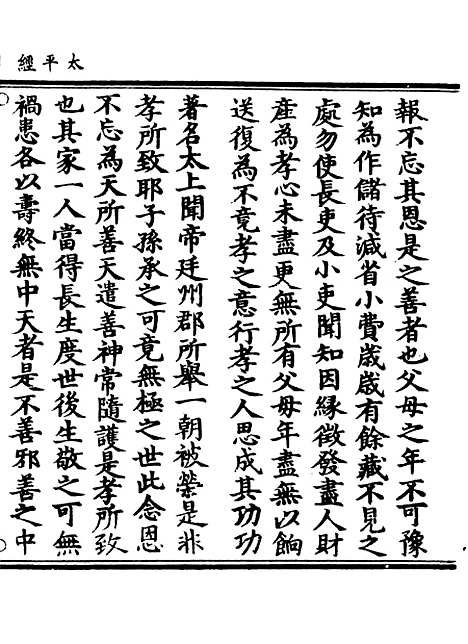 太平經
報不忘其恩是之善者也父母之年不可豫
知為作儲待減省小費歲歲有餘藏不見之
處勿使長吏及小吏聞知因緣徵發盡人財
產為孝心未盡更無所有父母年盡無以餉
送復為不竟孝之意行孝之人思成其功功
著名太上聞帝廷州郡所舉一朝被榮是非
孝所致耶子孫承之可竟無極之世此念恩
不忘為天所善天遣善神常隨護是孝所致
也其家一人當得長生度世後生敬之可無
禍患各以壽終無中夭者是不善邪善之中